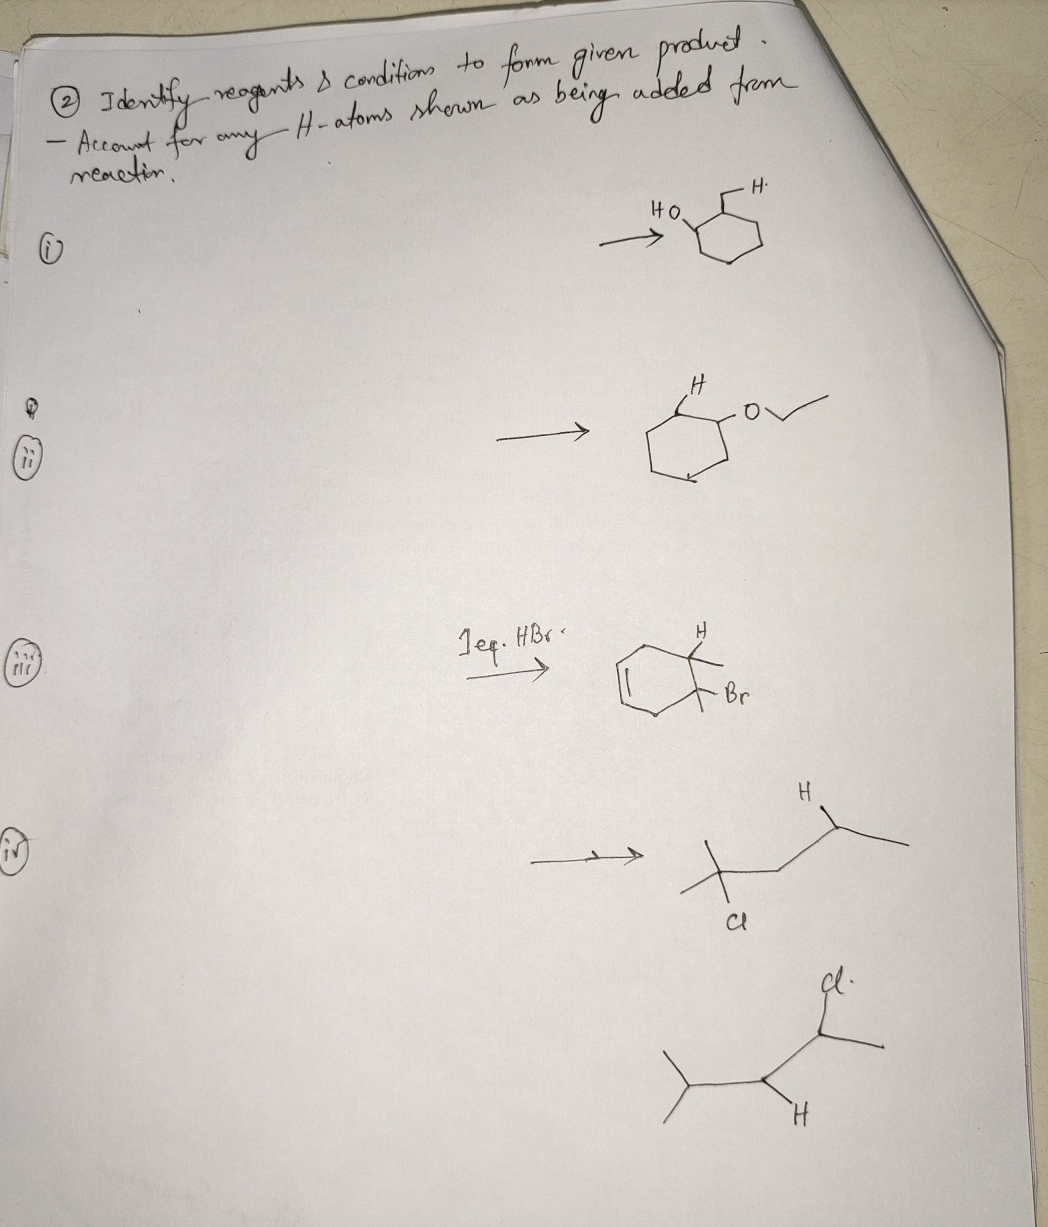 ② Identify reagents & conditions to form given product.
- Account for any H-atoms shown as being added from
reaction.
H
HO
(i)
H
O
(ii)
1eq. HBr
H
(iii)
Br
H
(iv)
Cl
Cl
H